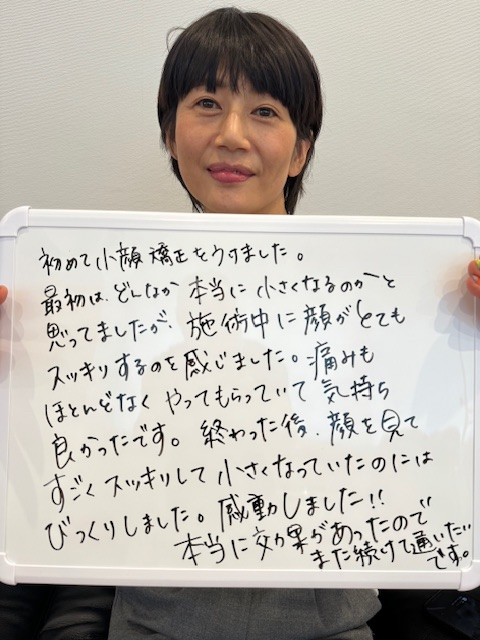 初めて小顔矯正をうけました。
最初は、どんなか本当に小さくなるのかと
思ってましたが、施術中に顔がとても
スッキリするのを感じました。痛みも
ほとんどなくやってもらっていて気持ち
良かったです。終わった後、顔を見て
すごくスッキリして小さくなっていたのには
びっくりしました。感動しました!!
本当に効果があったので
また続けて通いたい
です。